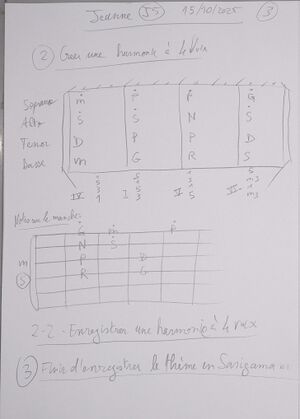 Jeanne S5 15/10/2025 3
2 Créer une harmonie à 4 voix
Soprano ṁ Ṗ Ṗ Ġ
Alto Ṡ Ṡ N S
Tenor D P P D
Basse m G R S
IV I V VI-
Notes sur le manche
Ġ ṁ Ṗ
N Ṡ
m P D
S R G
2-2- Enregistrer une harmonie à 4 voix
3 Finir d'enregistrer le thème en Sarigama